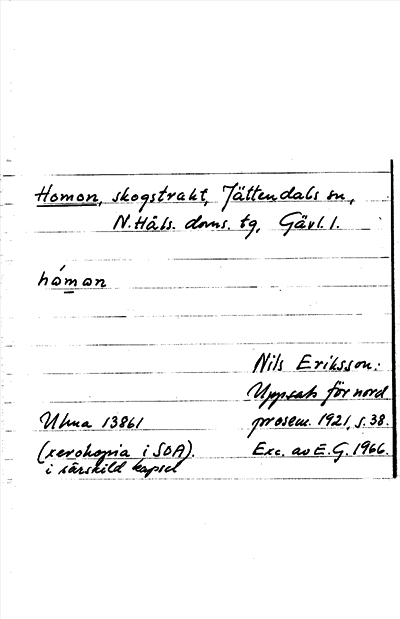 Homon, skogstrakt, Jättendals sn,
N. Häls. doms. tg, Gävl. l.
hóman
Nils Eriksson:
Uppsats för nord
Ulma 13861 prosem. 1921, s. 38.
(xerokopia i SOA). Exc. av E. G. 1966.
i särskild kapsel